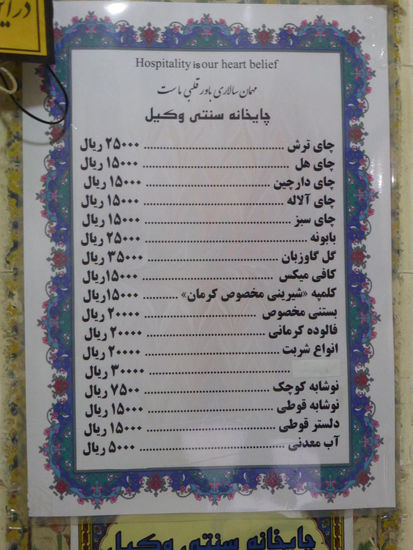 در این
Hospitality is our heart belief
مهمان سالاری باور قلبی ما ست
چایخانه سنتی وکیل
چای ترش ........................ ۲۵۰۰۰ ریال
چای هل ........................ ۱۵۰۰۰ ریال
چای دارچین ........................ ۱۵۰۰۰ ریال
چای آلاله ........................ ۱۵۰۰۰ ریال
چای سبز ........................ ۱۵۰۰۰ ریال
بابونه ........................ ۲۵۰۰۰ ریال
گل گاوزبان ........................ ۳۵۰۰۰ ریال
کافی میکس ........................ ۱۵۰۰۰ریال
کلمپه «شیرینی مخصوص کرمان» .......... ۱۵۰۰۰ریال
بستنی مخصوص ........................ ۲۰۰۰۰ ریال
فالوده کرمانی ........................ ۲۰۰۰۰ ریال
انواع شربت ........................ ۲۰۰۰۰ ریال
........................ ۳۰۰۰۰ ریال
نوشابه کوچک ........................ ۷۵۰۰ ریال
نوشابه قوطی ........................ ۱۵۰۰۰ ریال
دلستر قوطی ........................ ۱۵۰۰۰ ریال
آب معدنی ........................ ۵۰۰۰ ریال
چایخانه سنتی وکیل